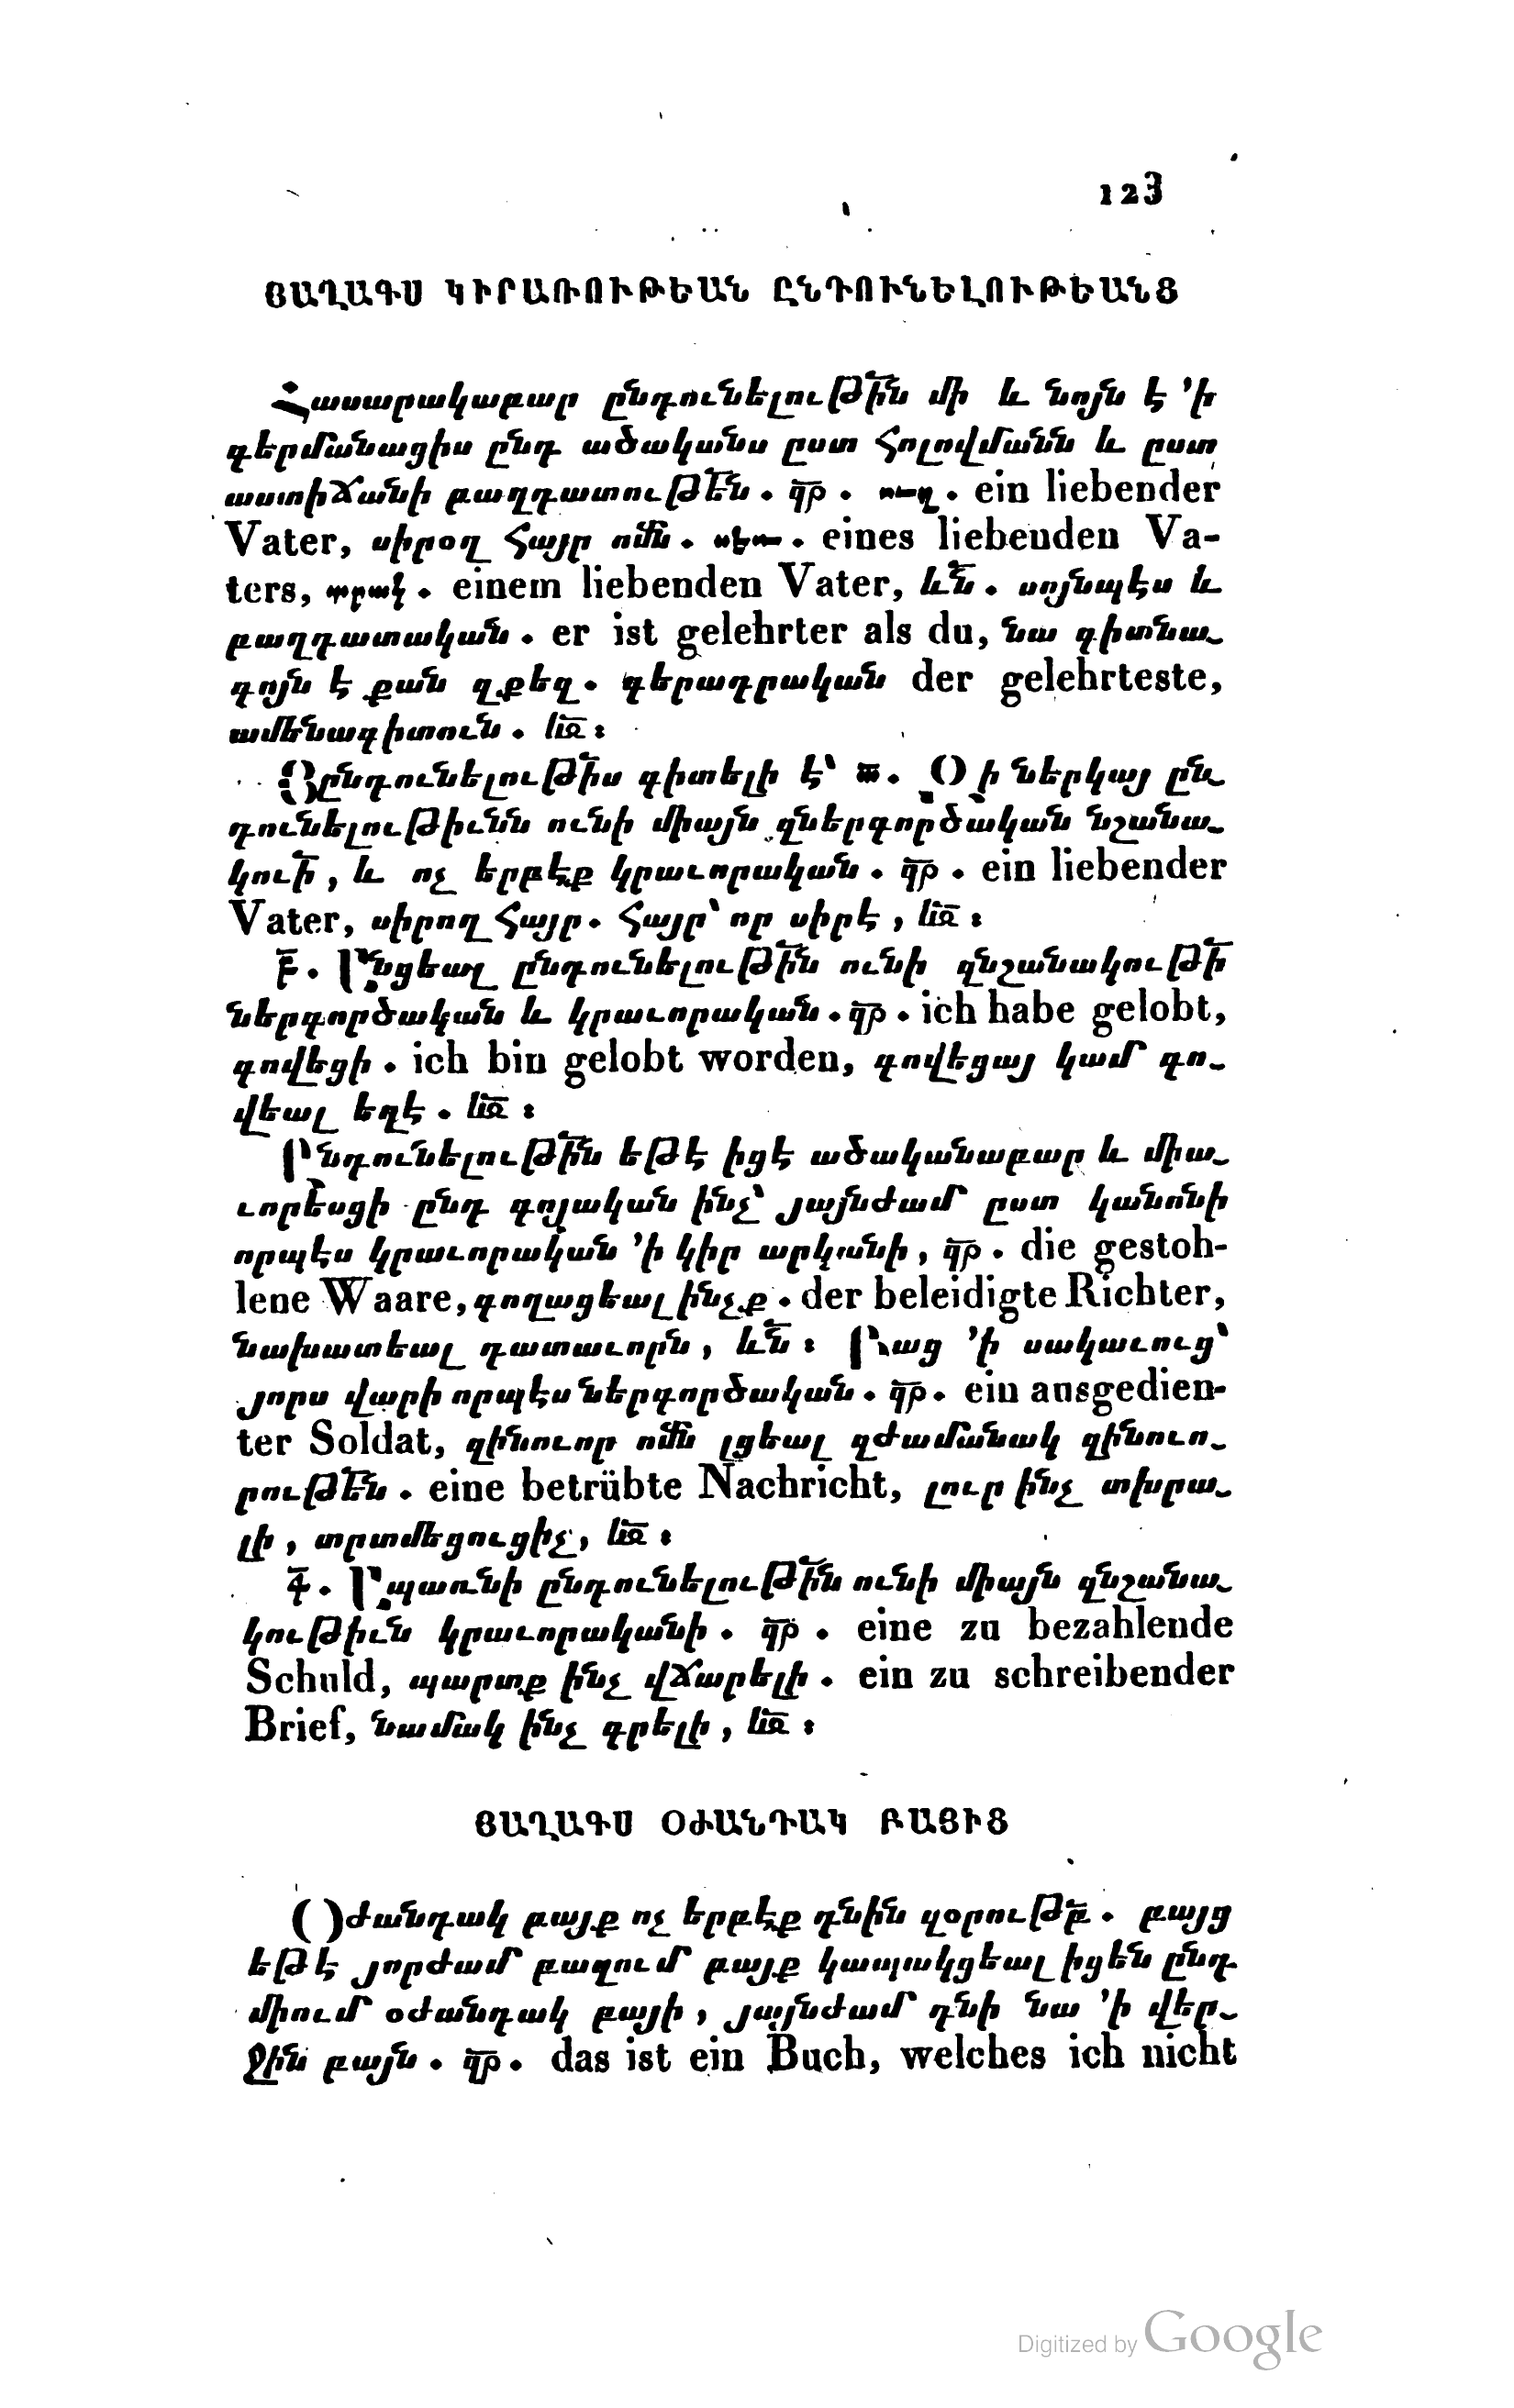 123
ՅԱՂԱԳՍ ԿԻՐԱՌՈՒԹԵԱՆ ԸՆԴՈՒՆԵԼՈՒԹԵԱՆՑ
Հասարակաբար ընդունելութի՟ն մի և նոյն է ՚ի
գերմանացիս ընդ ածականս ըստ հոլովմանն և ըստ
աստիճանի բաղդատութե՟ն . զր՟ . ուղ . ein liebender
Vater, սիրօղ հայր ոմն . սեռ . eines liebenden Va-
ters, տրակ . einem liebenden Vater, ևն՟ . սոյնպէս և
բաղդատական . er ist gelehrter als du, նա գիտնա֊
գոյն է քան զքեզ . գերադրական der gelehrteste,
ամենագիտուն . և՟ւ ։
Յընդունելութի՟ս գիտելի է՝ ա՟ . Զի ներկայ ըն֊
դունելութիւնն ունի միայն զներգործական նշանա֊
կուի՟ , և ոչ երբէք կրաւորական . զր՟ . ein liebender
Vater, սիրող հայր . հայր՝ որ սիրէ , և՟ւ ։
բ՟ . Անցեալ ընդունելութի՟ն ունի զնշանակութի՟
ներգործական և կրաւորական . զր՟ . ich habe gelobt,
գովեցի . ich bin gelobt worden, գովեցայ կամ գո֊
վեալ եղէ . և՟ւ ։
Ընդունելութի՟ն եթէ իցէ ածականաբար և միա֊
ւորեսցի ընդ գոյական ինչ՝ յայնժամ ըստ կանոնի
որպէս կրաւորական ՚ի կիր արկանի , զր՟ . die gestoh-
lene Waare, գողացեալ ինչք . der beleidigte Richter,
նախատեալ դատաւորն , ևն՟ ։ Բաց ՚ի սակաւուց՝
յորս վարի որպէս ներգործական . զր՟ . ein ausgedien-
ter Soldat, զինուոր ոմն լցեալ զժամանակ զինուո֊
րութե՟ն . eine betrübte Nachricht, լուր ինչ տխրա֊
լի , տրտմեցուցիչ , և՟ւ ։
գ՟ . Ապառնի ընդունելութի՟ն ունի միայն զնշանա֊
կութիւն կրաւորականի . զր՟ . eine zu bezahlende
Schuld, պարտք ինչ վճարելի . ein zu schreibender
Brief, նամակ ինչ գրելի , և՟ւ ։
ՅԱՂԱԳՍ ՕԺԱՆԴԱԿ ԲԱՅԻՑ
Օժանդակ բայք ոչ երբէք դնին կօրութբ՟ . բայց
եթէ յորժամ բազում բայք կապակցեալ իցեն ընդ
միում օժանդակ բայի , յայնժամ դնի նա ՚ի վեր֊
ջին բայն . զր՟ . das ist ein Buch, welches ich nicht
Digitized by Google